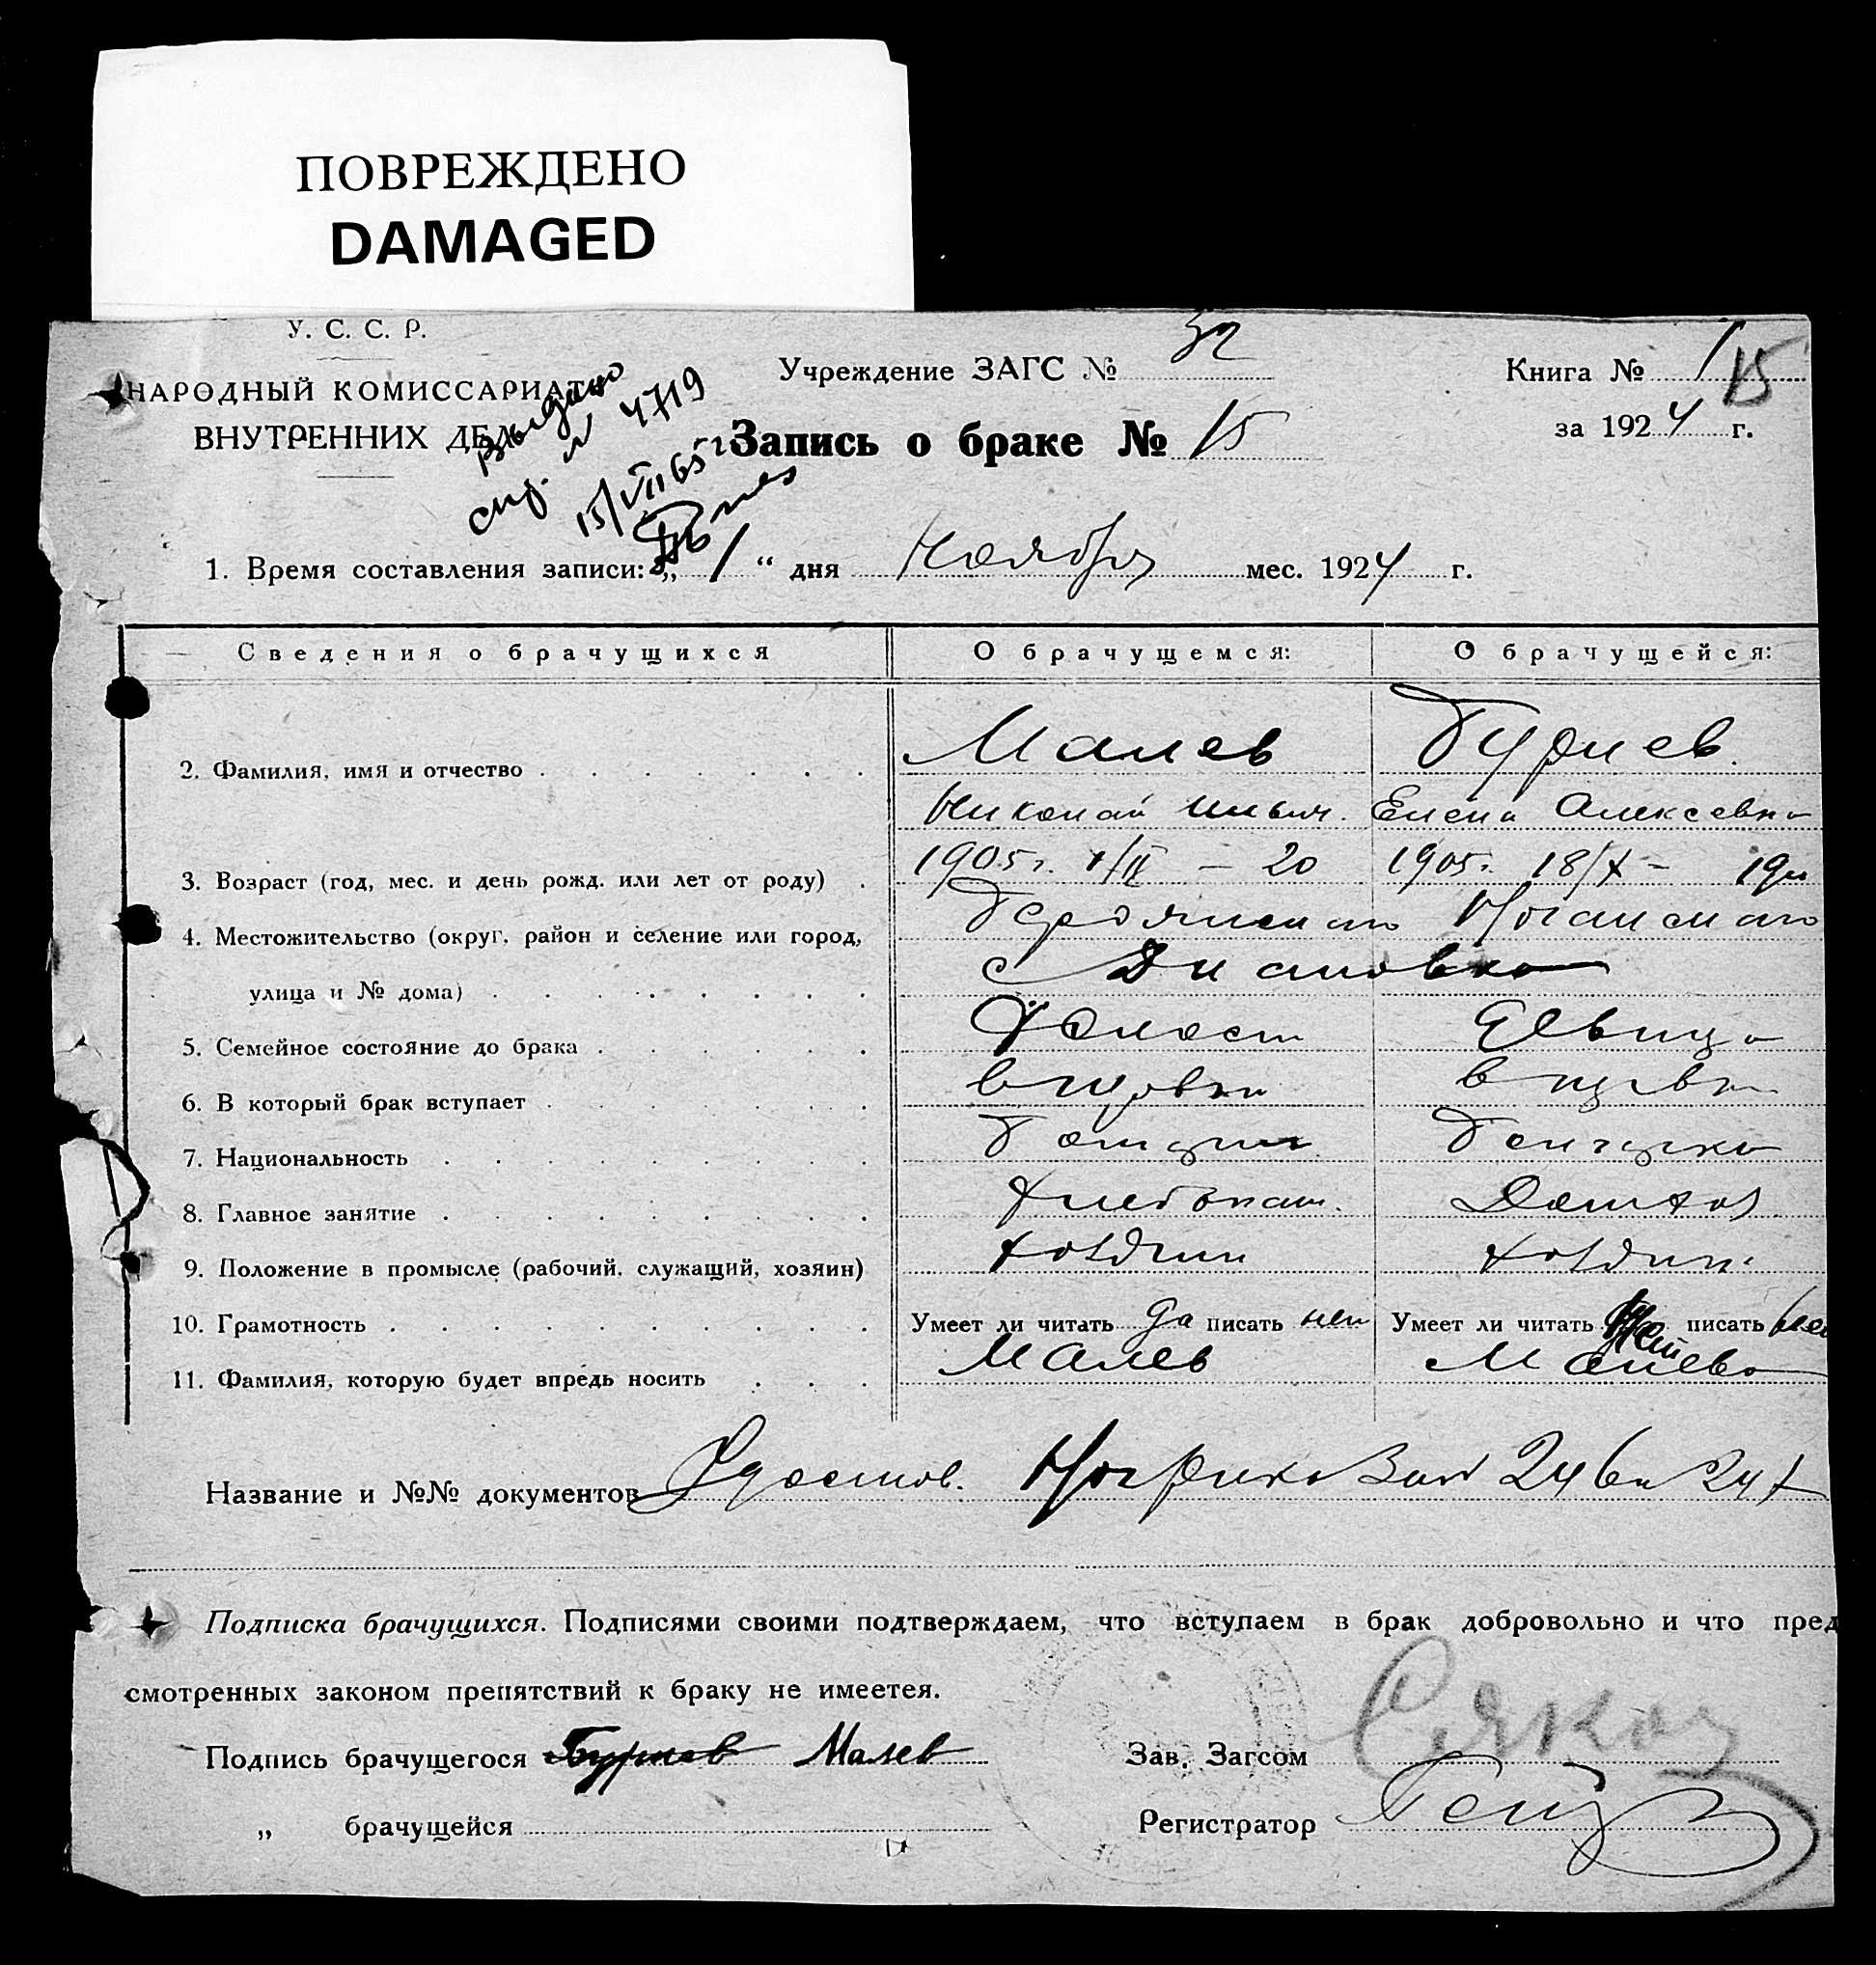 ПОВРЕЖДЕНО
DAMAGED
У. С. С. Р.
НАРОДНЫЙ КОМИССАРИАТ
ВНУТРЕННИХ ДЕЛ
Учреждение ЗАГС № 32
Книга № 1
15
за 1924 г.
Выдано
№ 4719
15/VII 65 г
Запись о браке № 15
1. Время составления записи: „ 1 “ дня Ноября мес. 1924 г.
Сведения о брачущихся О брачущемся: О брачущейся:
2. Фамилия, имя и отчество Малев
Николай Ильич. Елена Алексевна
3. Возраст (год, мес. и день рожд. или лет от роду) 1905 г. – 20 1905 г. 18/X – 19
4. Местожительство (округ, район и селение или город,
улица и № дома) с
5. Семейное состояние до брака Холост Девица
6. В который брак вступает впервы впервы
7. Национальность
8. Главное занятие Хлебопаш. Домхоз
9. Положение в промысле (рабочий, служащий, хозяин) хозяин хозяин
10. Грамотность Умеет ли читать да писать Умеет ли читать писать
11. Фамилия, которую будет впредь носить Малев Малева
Название и №№ документов Удостов.
Подписка брачущихся. Подписями своими подтверждаем, что вступаем в брак добровольно и что пред
смотренных законом препятствий к браку не имеется.
Подпись брачущегося Малев Зав. Загсом
„ брачущейся Регистратор